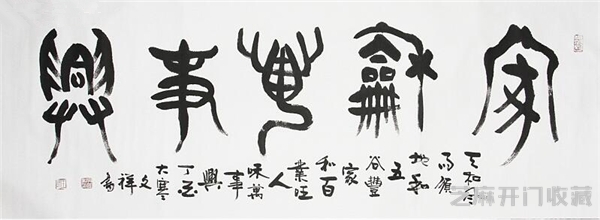 家龢萬事興
天和風
雨順
地和
五
谷豐
家
和百
業旺
人
和萬
事
興
丁亥
大寒
文
祥
書
芝麻开门收藏